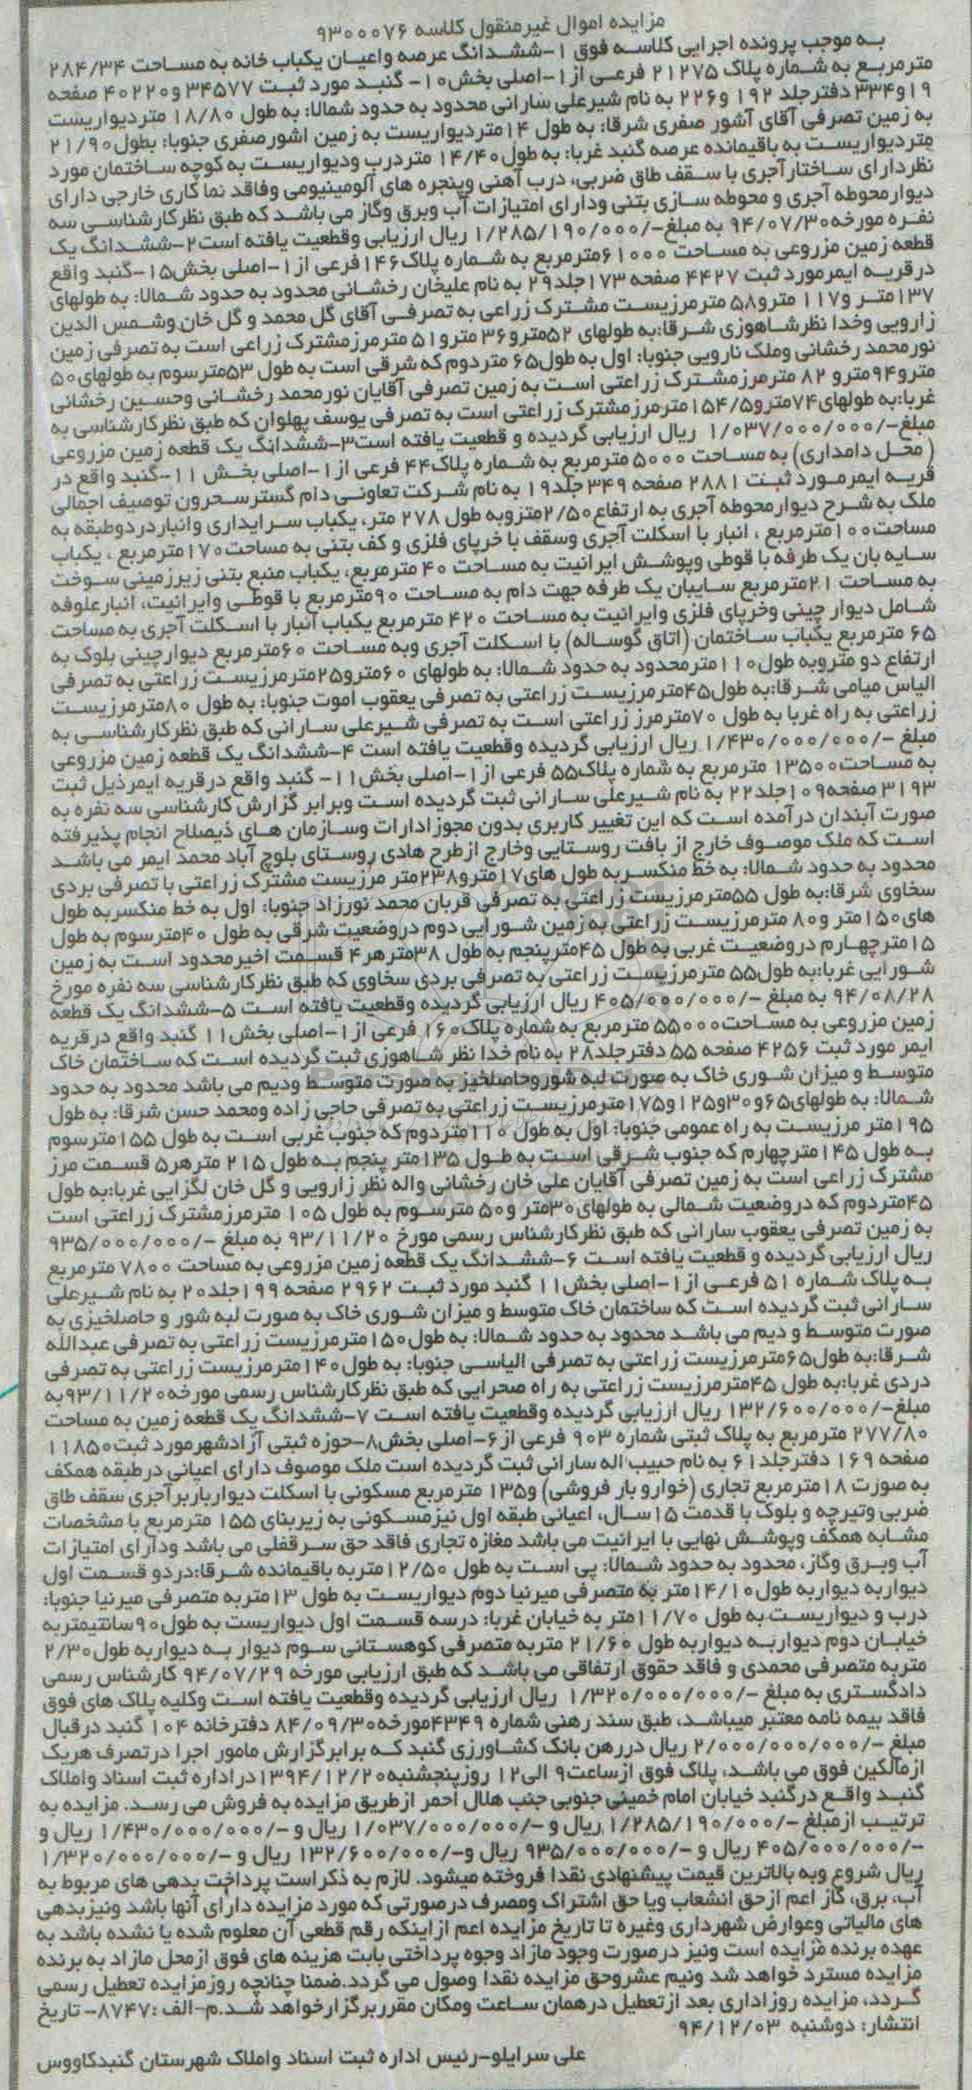 مزایده اموال غیرمنقول کلاسه ۹۳۰۰۰۷۶
به موجب پرونده اجرایی کلاسه فوق ۱-ششدانگ عرصه واعیان یکباب خانه به مساحت ۲۸۴/۳۴
مترمربع به شماره پلاک ۲۱۲۷۵ فرعی از۱-اصلی بخش۱۰- گنبد مورد ثبت ۳۴۵۷۷ و۴۰۲۲۰ صفحه
۱۹و۳۳۴ دفترجلد ۱۹۲ و۲۲۶ به نام شیرعلی سارانی محدود به حدود شمالا: به طول ۱۸/۸۰ متردیواریست
به زمین تصرفی آقای آشور صفری شرقا: به طول ۱۴متردیواریست به زمین اشورصفری جنوبا: بطول۲۱/۹۰
متردیواریست به باقیمانده عرصه گنبد غربا: به طول۱۴/۴۰ متردرب ودیواریست به کوچه ساختمان مورد
نظردارای ساختارآجری با سقف طاق ضربی، درب آهنی وپنجره های آلومینیومی وفاقد نما کاری خارجی دارای
دیوارمحوطه آجری و محوطه سازی بتنی ودارای امتیازات آب وبرق وگاز می باشد که طبق نظرکارشناسی سه
نفره مورخه۹۴/۰۷/۳۰ به مبلغ-/۱/۲۸۵/۱۹۰/۰۰۰ ریال ارزیابی وقطعیت یافته است۲-ششدانگ یک
قطعه زمین مزروعی به مساحت ۶۱۰۰۰مترمربع به شماره پلاک۱۴۶فرعی از۱-اصلی بخش۱۵-گنبد واقع
درقریه ایمرمورد ثبت ۴۴۲۷ صفحه ۱۷۳جلد۲۹ به نام علیخان رخشانی محدود به حدود شمالا: به طولهای
۱۳۷متر و۱۱۷ مترو۵۸ مترمرزیست مشترک زراعی به تصرفی آقای گل محمد و گل خان وشمس الدین
زارویی وخدا نظرشاهوزی شرقا:به طولهای ۵۲مترو۳۶ مترو۵۱ مترمرزمشترک زراعی است به تصرفی زمین
نورمحمد رخشانی وملک نارویی جنوبا: اول به طول۶۵ متردوم که شرقی است به طول ۵۳مترسوم به طولهای۵۰
مترو۹۴مترو ۸۲ مترمرزمشترک زراعتی است به زمین تصرفی آقایان نورمحمد رخشانی وحسین رخشانی
غربا:به طولهای۷۴مترو۱۵۴/۵مترمرزمشترک زراعتی است به تصرفی یوسف پهلوان که طبق نظرکارشناسی به
مبلغ-/۱/۰۳۷/۰۰۰/۰۰۰ ریال ارزیابی گردیده و قطعیت یافته است۳-ششدانگ یک قطعه زمین مزروعی
(محل دامداری) به مساحت ۵۰۰۰ مترمربع به شماره پلاک۴۴ فرعی از۱-اصلی بخش ۱۱-گنبد واقع در
قریه ایمرمورد ثبت ۲۸۸۱ صفحه ۳۴۹ جلد۱۹ به نام شرکت تعاونی دام گسترسحرون توصیف اجمالی
ملک به شرح دیوارمحوطه آجری به ارتفاع۲/۵۰متروبه طول ۲۷۸ متر، یکباب سرایداری وانباردردوطبقه به
مساحت۱۰۰مترمربع ، انبار با اسکلت آجری وسقف با خرپای فلزی و کف بتنی به مساحت۱۷۰مترمربع ، یکباب
سایه بان یک طرفه با قوطی وپوشش ایرانیت به مساحت ۴۰ مترمربع، یکباب منبع بتنی زیرزمینی سوخت
به مساحت ۲۱مترمربع سایبان یک طرفه جهت دام به مساحت ۹۰مترمربع با قوطی وایرانیت، انبارعلوفه
شامل دیوار چینی وخرپای فلزی وایرانیت به مساحت ۴۲۰ مترمربع یکباب انبار با اسکلت آجری به مساحت
۶۵ مترمربع یکباب ساختمان (اتاق گوساله) با اسکلت آجری وبه مساحت ۶۰مترمربع دیوارچینی بلوک به
ارتفاع دو متروبه طول۱۱۰مترمحدود به حدود شمالا: به طولهای ۶۰مترو۲۵مترمرزیست زراعتی به تصرفی
الیاس میامی شرقا:به طول۴۵مترمرزیست زراعتی به تصرفی یعقوب اموت جنوبا: به طول ۸۰مترمرزیست
زراعتی به راه غربا به طول ۷۰مترمرز زراعتی است به تصرفی شیرعلی سارانی که طبق نظرکارشناسی به
مبلغ -/۱/۴۳۰/۰۰۰/۰۰۰ ریال ارزیابی گردیده وقطعیت یافته است ۴-ششدانگ یک قطعه زمین مزروعی
به مساحت۱۳۵۰۰ مترمربع به شماره پلاک۵۵ فرعی از۱-اصلی بخش۱۱- گنبد واقع درقریه ایمرذیل ثبت
۳۱۹۳صفحه۱۰۹جلد۲۲ به نام شیرعلی سارانی ثبت گردیده است وبرابر گزارش کارشناسی سه نفره به
صورت آبندان درآمده است که این تغییر کاربری بدون مجوزادارات وسازمان های ذیصلاح انجام پذیرفته
است که ملک موصوف خارج از بافت روستایی وخارج ازطرح هادی روستای بلوچ آباد محمد ایمر می باشد
محدود به حدود شمالا: به خط منکسربه طول های۱۷مترو۲۳۸متر مرزیست مشترک زراعتی با تصرفی بردی
سخاوی شرقا:به طول ۵۵مترمرزیست زراعتی به تصرفی قربان محمد نورزاد جنوبا: اول به خط منکسربه طول
های۱۵۰متر و۸۰ مترمرزیست زراعتی به زمین شورایی دوم دروضعیت شرقی به طول ۴۰مترسوم به طول
۱۵مترچهارم دروضعیت غربی به طول ۴۵مترپنجم به طول ۳۸مترهر۴ قسمت اخیرمحدود است به زمین
شورایی غربا:به طول۵۵ مترمرزیست زراعتی به تصرفی بردی سخاوی که طبق نظرکارشناسی سه نفره مورخ
۹۴/۰۸/۲۸ به مبلغ -/۴۰۵/۰۰۰/۰۰۰ ریال ارزیابی گردیده وقطعیت یافته است ۵-ششدانگ یک قطعه
زمین مزروعی به مساحت۵۵۰۰۰ مترمربع به شماره پلاک۱۶۰ فرعی از۱-اصلی بخش۱۱ گنبد واقع درقریه
ایمر مورد ثبت ۴۲۵۶ صفحه ۵۵ دفترجلد۲۸ به نام خدا نظر شاهوزی ثبت گردیده است که ساختمان خاک
متوسط و میزان شوری خاک به صورت لبه شوروحاصلخیز به صورت متوسط ودیم می باشد محدود به حدود
شمالا: به طولهای۶۵و۳۰و۱۲۵و۱۷۵مترمرزیست زراعتی به تصرفی حاجی زاده ومحمد حسن شرقا: به طول
۱۹۵متر مرزیست به راه عمومی جنوبا: اول به طول ۱۱۰متردوم که جنوب غربی است به طول ۱۵۵مترسوم
به طول ۱۴۵مترچهارم که جنوب شرقی است به طول ۱۳۵متر پنجم به طول ۲۱۵ مترهر۵ قسمت مرز
مشترک زراعی است به زمین تصرفی آقایان علی خان رخشانی واله نظر زارویی و گل خان لگزایی غربا:به طول
۴۵متردوم که دروضعیت شمالی به طولهای۳۰متر و۵۰ مترسوم به طول ۱۰۵ مترمرزمشترک زراعتی است
به زمین تصرفی یعقوب سارانی که طبق نظرکارشناس رسمی مورخ ۹۳/۱۱/۲۰ به مبلغ -/۹۳۵/۰۰۰/۰۰۰
ریال ارزیابی گردیده و قطعیت یافته است ۶-ششدانگ یک قطعه زمین مزروعی به مساحت ۷۸۰۰ مترمربع
به پلاک شماره ۵۱ فرعی از۱-اصلی بخش۱۱ گنبد مورد ثبت ۲۹۶۲ صفحه ۱۹۹جلد۲۰ به نام شیرعلی
سارانی ثبت گردیده است که ساختمان خاک متوسط و میزان شوری خاک به صورت لبه شور و حاصلخیزی به
صورت متوسط و دیم می باشد محدود به حدود شمالا: به طول۱۵۰مترمرزیست زراعتی به تصرفی عبدالله
شرقا:به طول۶۵مترمرزیست زراعتی به تصرفی الیاسی جنوبا: به طول۱۴۰مترمرزیست زراعتی به تصرفی
دردی غربا:به طول ۴۵مترمرزیست زراعتی به راه صحرایی که طبق نظرکارشناس رسمی مورخه۹۳/۱۱/۲۰به
مبلغ-/۱۳۲/۶۰۰/۰۰۰ ریال ارزیابی گردیده وقطعیت یافته است ۷-ششدانگ یک قطعه زمین به مساحت
۲۷۷/۸۰ مترمربع به پلاک ثبتی شماره ۹۰۳ فرعی از۶-اصلی بخش۸-حوزه ثبتی آزادشهرمورد ثبت۱۱۸۵۰
صفحه ۱۶۹ دفترجلد۶۱ به نام حبیب اله سارانی ثبت گردیده است ملک موصوف دارای اعیانی درطبقه همکف
به صورت ۱۸مترمربع تجاری (خوارو بار فروشی) و۱۳۵ مترمربع مسکونی با اسکلت دیواربار‌برآجری سقف طاق
ضربی وتیرچه و بلوک با قدمت ۱۵سال، اعیانی طبقه اول نیزمسکونی به زیربنای ۱۵۵ مترمربع با مشخصات
مشابه همکف وپوشش نهایی با ایرانیت می باشد مغازه تجاری فاقد حق سرقفلی می باشد ودارای امتیازات
آب وبرق وگاز، محدود به حدود شمالا: پی است به طول ۱۲/۵۰متربه باقیمانده شرقا:دردو قسمت اول
دیواربه دیواربه طول۱۴/۱۰متر به متصرفی میرنیا دوم دیواریست به طول ۱۳متربه متصرفی میرنیا جنوبا:
درب و دیواریست به طول ۱۱/۷۰متر به خیابان غربا: درسه قسمت اول دیواریست به طول۹۰سانتیمتربه
خیابان دوم دیواربه دیواربه طول ۲۱/۶۰ متربه متصرفی کوهستانی سوم دیوار به دیواربه طول۲/۳۰
متربه متصرفی محمدی و فاقد حقوق ارتفاقی می باشد که طبق ارزیابی مورخه ۹۴/۰۷/۲۹ کارشناس رسمی
دادگستری به مبلغ -/۱/۳۲۰/۰۰۰/۰۰۰ ریال ارزیابی گردیده وقطعیت یافته است وکلیه پلاک های فوق
فاقد بیمه نامه معتبر میباشد، طبق سند رهنی شماره ۴۳۴۹مورخه۸۴/۰۹/۳۰ دفترخانه ۱۰۴ گنبد درقبال
مبلغ -/۲/۰۰۰/۰۰۰/۰۰۰ ریال دررهن بانک کشاورزی گنبد که برابرگزارش مامور اجرا درتصرف هریک
ازمالکین فوق می باشد، پلاک فوق ازساعت۹ الی۱۲ روزپنجشنبه۱۳۹۴/۱۲/۲۰دراداره ثبت اسناد واملاک
گنبد واقع درگنبد خیابان امام خمینی جنوبی جنب هلال احمر ازطریق مزایده به فروش می رسد. مزایده به
ترتیب ازمبلغ -/۱/۲۸۵/۱۹۰/۰۰۰ ریال و -/۱/۰۳۷/۰۰۰/۰۰۰ ریال و -/۱/۴۳۰/۰۰۰/۰۰۰ ریال و
-/۴۰۵/۰۰۰/۰۰۰ ریال و -/۹۳۵/۰۰۰/۰۰۰ ریال و-/۱۳۲/۶۰۰/۰۰۰ ریال و -/۱/۳۲۰/۰۰۰/۰۰۰
ریال شروع وبه بالاترین قیمت پیشنهادی نقدا فروخته میشود. لازم به ذکراست پرداخت بدهی های مربوط به
آب، برق، گاز اعم ازحق انشعاب ویا حق اشتراک ومصرف درصورتی که مورد مزایده دارای آنها باشد ونیزبدهی
های مالیاتی وعوارض شهرداری وغیره تا تاریخ مزایده اعم ازاینکه رقم قطعی آن معلوم شده یا نشده باشد به
عهده برنده مزایده است ونیز درصورت وجود مازاد وجوه پرداختی بابت هزینه های فوق ازمحل مازاد به برنده
مزایده مسترد خواهد شد ونیم عشروحق مزایده نقدا وصول می گردد.ضمنا چنانچه روزمزایده تعطیل رسمی
گردد، مزایده روزاداری بعد ازتعطیل درهمان ساعت ومکان مقرربرگزارخواهد شد.م-الف :۸۷۴۷- تاریخ
انتشار: دوشنبه ۹۴/۱۲/۰۳
علی سرایلو-رئیس اداره ثبت اسناد واملاک شهرستان گنبدکاووس